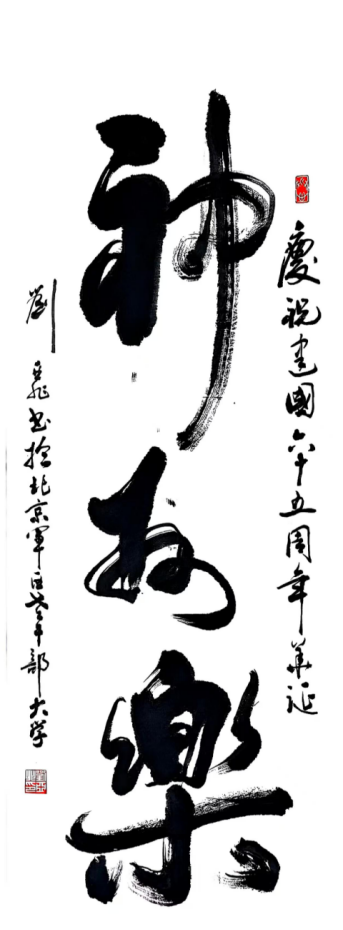 慶祝建國六十五周年華誕
神州樂
劉 書於北京軍区老干部大学